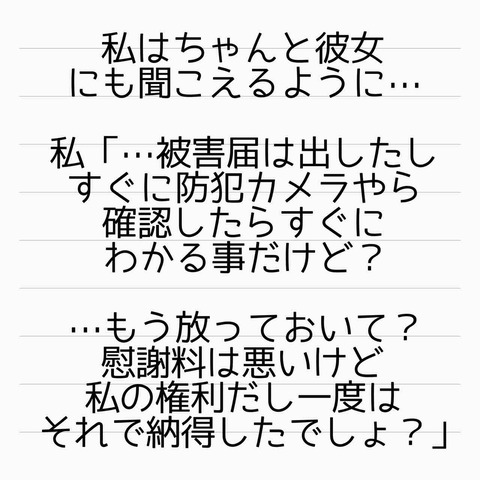 私はちゃんと彼女
にも聞こえるように…
私「…被害届は出したし
すぐに防犯カメラやら
確認したらすぐに
わかる事だけど？
…もう放っておいて？
慰謝料は悪いけど
私の権利だし一度は
それで納得したでしょ？」